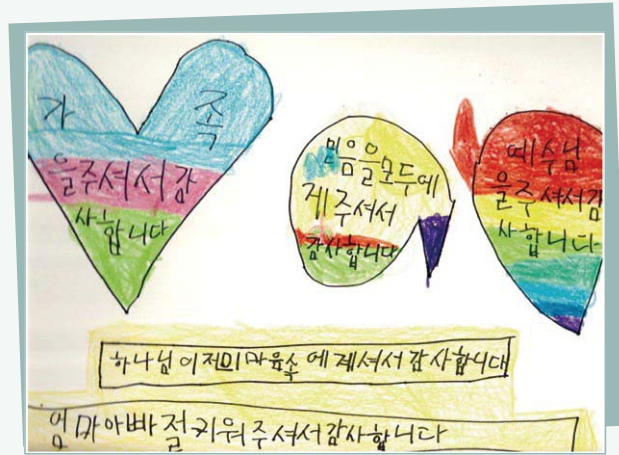 가족
을주셔서감
사합니다
믿음을모두에
게주셔서
감사합니다
예수님
을주셔서감
사합니다
하나님이저미마음속에계셔서감사합니다
엄마아빠절키워주셔서감사합니다